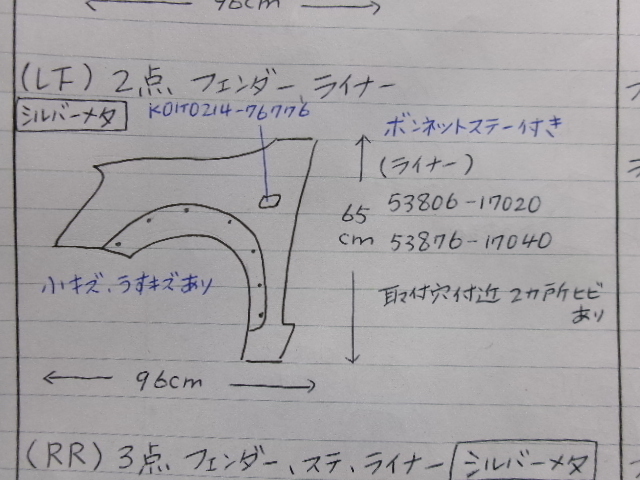 96cm
(LF) 2点、フェンダー、ライナー
シルバーメタ
KOITO214-76776
ボンネットステー付き
(ライナー)
65
cm
53806-17020
53876-17040
小キズ、うすキズあり
取付穴付近 2カ所ヒビ
あり
96cm
(RR) 3点、フェンダー、ステ、ライナー
シルバーメタ